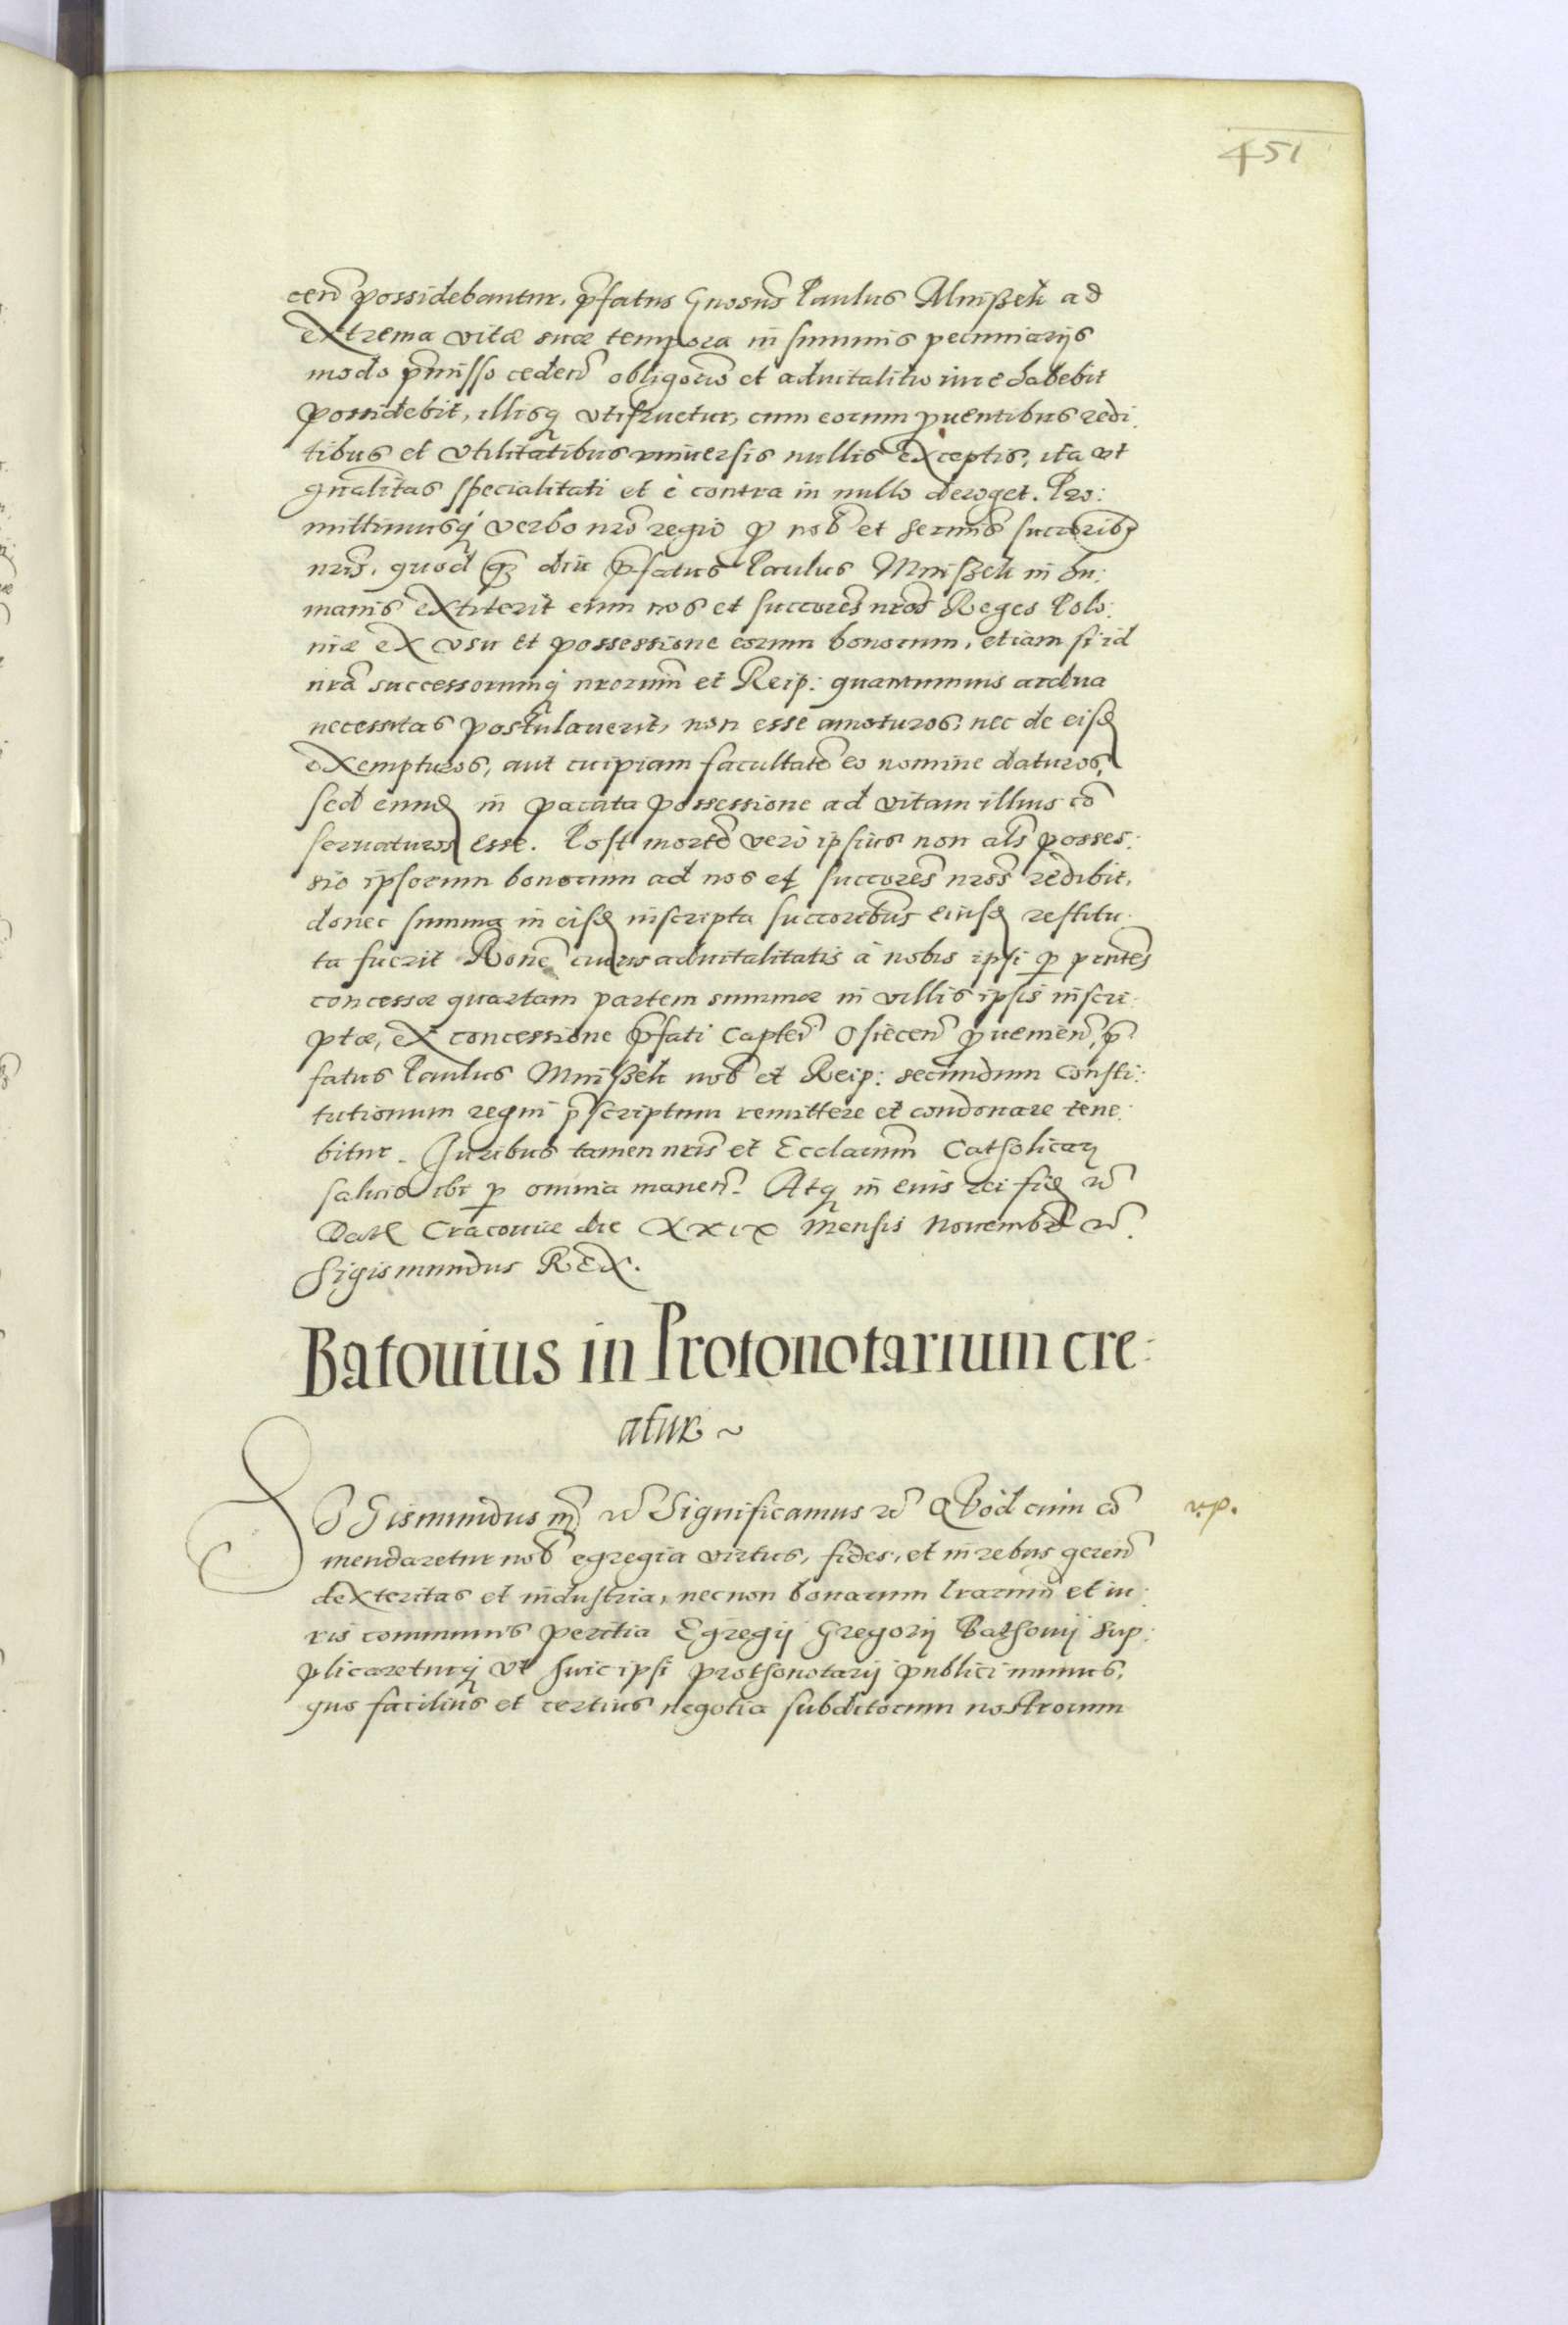 451
ceñ possidebantur. p̃fatus Gnosus Paulus Mnißek ad
extrema vitæ suæ tempora in summis pecuniarijs
modo p̃misso ceden̄ obligorio et aduitalitio iure habebit
possidebit, illisq utifruetur, cum eorum ꝓuentibus redi:
tibus et vtilitatibus vniuersis nullis exceptis, ita vt
gn̄alitas specialitati et è contra in nullo deroget. Pro:
mittimusq verbo nr̄o regio ꝓ nob̄ et serm̄is succorib9
nr̄is, quod q̃ diu p̃fatus Paulus Mnißek in hu:
manis extiterit eum nos et succores̄ nr̄os Reges Polo:
niæ ex vsu et possessione eorum bonorum, etiam si id
nr̄a successorumq nrorum̄ et Reip: quantumuis ardua
necessitas postulauerit, non esse amoturos, nec de eisd
exempturos, aut cuipiam facultatē eo nomine daturos,
sed eund in pacata possessione ad vitam illius cō
seruaturos esse. Post mortē verò ipsius non al̄s posses:
sio ipsorum bonorum ad nos et succores̄ nr̄os redibit,
donec summa in eisd inscripta succoribus̄ eiusd restitu:
ta fuerit Rone̅ cuius aduitalitatis à nobis ipsi ꝑ pn̄tes
concessæ quartam partem summæ in villis ipsis inscri:
ptæ, ex concessione p̃fati Capten̄ Osiecen̄ ꝓuenien̄, p̃
fatus Paulus Mnißek nob̄ et Reip: secundum Consti:
tutionum regni p̃scriptum remittere et condonare tene:
bitur. Juribus tamen nr̄is et Ecclarum̄ Catholicarꝝ
saluis ibi ꝑ omnia manen̄. Atq in cuius rei fid etc̄
Datꝭ Cracouiæ die XXIX Mensis Nouembr̄ etc̄.
Sigismundus REX.
Batouius in Protonotarium cre:
atur ~
SIGismundus m̄ etc̄ Significamus etc̄ QVod cum cō v.p.
mendaretur nob̄ egregia virtus, fides, et in rebus geren̄
dexteritas et industria, necnon bonarum lrarum̄ et iu:
ris communis peritia Egregij Gregorij Bathouij sup:
plicareturq vt huic ipsi prothonotarij publici munus,
quo facilius et certius negotia subditorum nostrorum